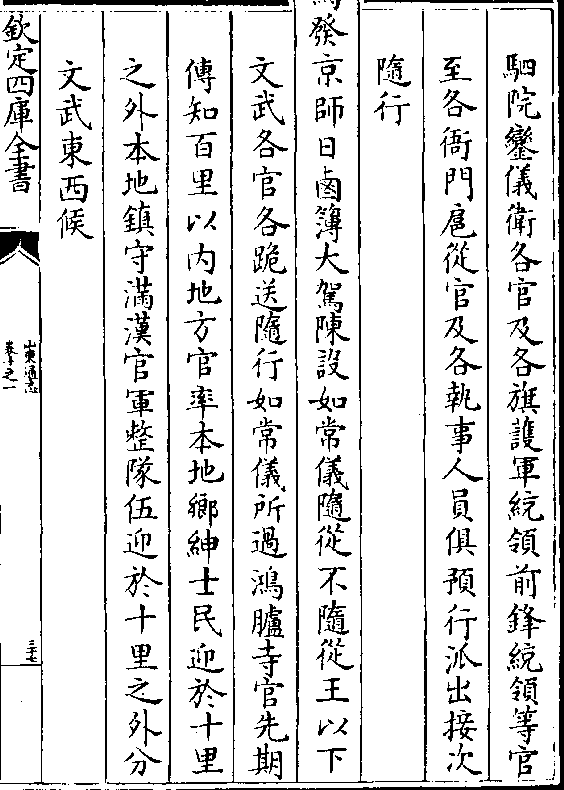 駟院鑾儀衛各官及各旗護軍統領前鋒統領等官
至各衙門扈從官及各執事人員俱預行派出接次
隨行
發京師日鹵簿大駕陳設如常儀隨從不隨從王以下
文武各官各跪送隨行如常儀所過鴻臚寺官先期
傳知百里以内地方官率本地鄉紳士民迎於十里
之外本地鎮守滿漢官軍整隊伍迎於十里之外分
文武東西候
欽定四庫全書
山東通志
卷十之一
三十七